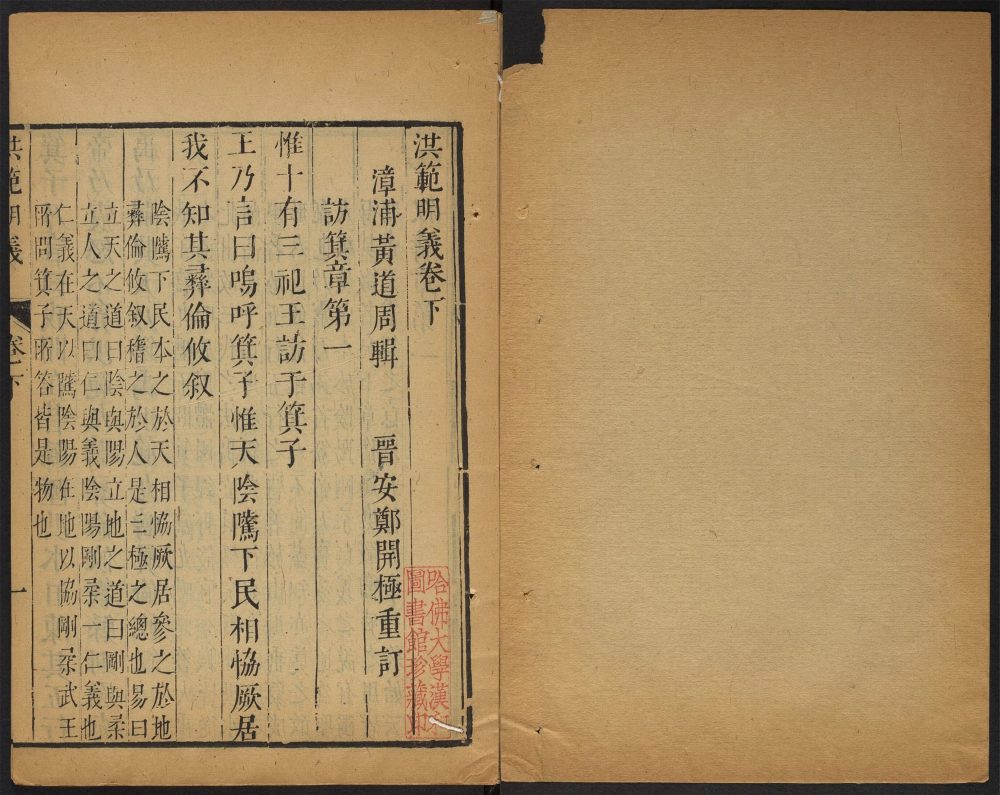 洪範明義卷下
漳浦黃道周輯　晋安鄭開極重訂
訪箕章第一
惟十有三祀王訪于箕子
王乃言曰嗚呼箕子惟天陰騭下民相恊厥居
我不知其彞倫攸叙
陰騭下民本之於天相恊厥居參之於地
彞倫攸叙稽之於人是三極之總也易曰
立天之道曰陰與陽立地之道曰剛與柔
立人之道曰仁與義陰陽剛柔一仁義也
仁義在天以騭陰陽在地以恊剛柔武王
所問箕子所答皆是物也
洪範明義
卷下
一
哈佛大學漢和
圖書館珍藏印